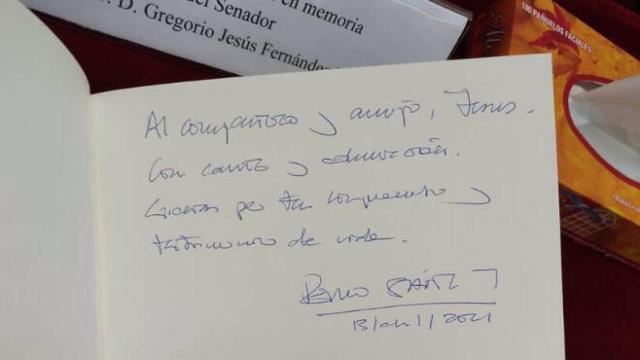 en memoria
del Senador
D. Gregorio Jesús Fernández
100 PAÑUELOS FACIALES
Al compañero y amigo, Jesús.
Con cariño y admiración.
Gracias por tu compromiso y
testimonio de vida.
Pedro SÁNCHEZ
13/abril/2021